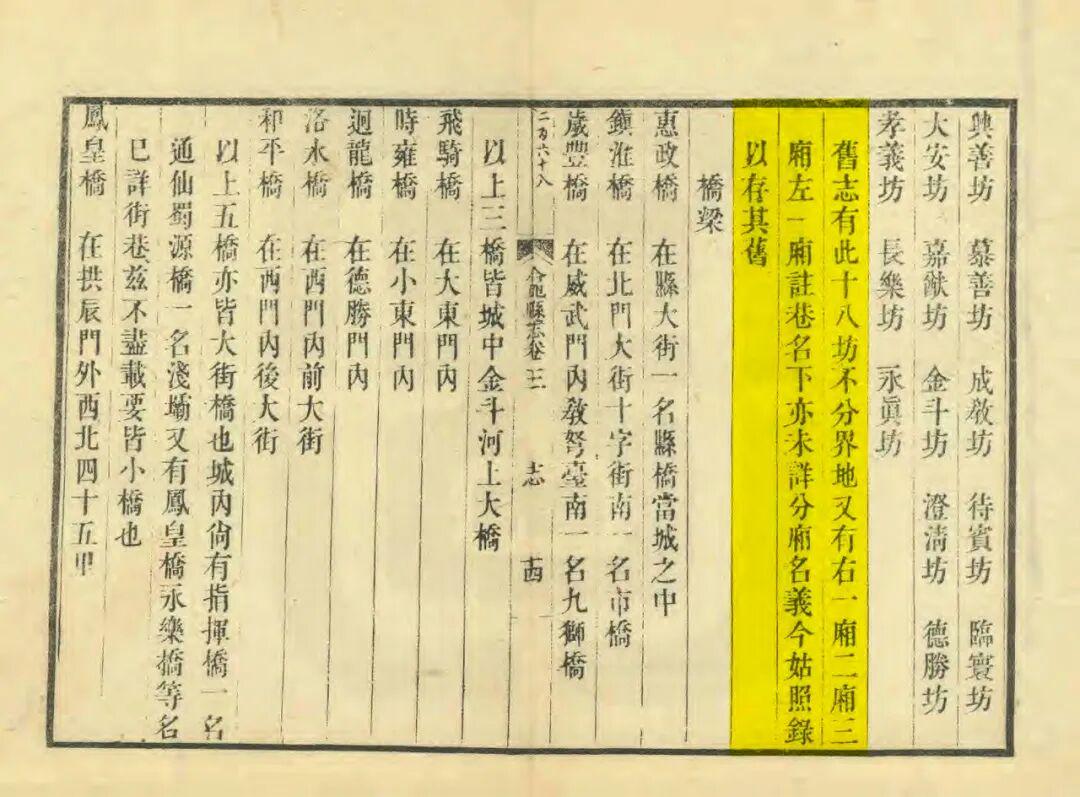 興善坊 慕善坊 成敎坊 待賓坊 臨寰坊
大安坊 嘉猷坊 金斗坊 澄淸坊 德勝坊
孝義坊 長樂坊 永眞坊
舊志有此十八坊不分界地又有右一廂二廂三
廂左一廂註巷名下亦未詳分廂名義今姑照錄
以存其舊
橋梁
惠政橋 在縣大街一名縣橋當城之中
鎭淮橋 在北門大街十字街南一名市橋
歲豐橋 在威武門內敎弩臺南一名九獅橋
二百六十八
合肥縣志卷三 志 十四
以上三橋皆城中金斗河上大橋
飛騎橋 在大東門內
時雍橋 在小東門內
迴龍橋 在德勝門內
洛水橋 在西門內前大街
和平橋 在西門內後大街
以上五橋亦皆大街橋也城內尙有指揮橋一名
通仙蜀源橋一名淺壩又有鳳皇橋永樂橋等名
巳詳街巷茲不盡載要皆小橋也
鳳皇橋 在拱辰門外西北四十五里